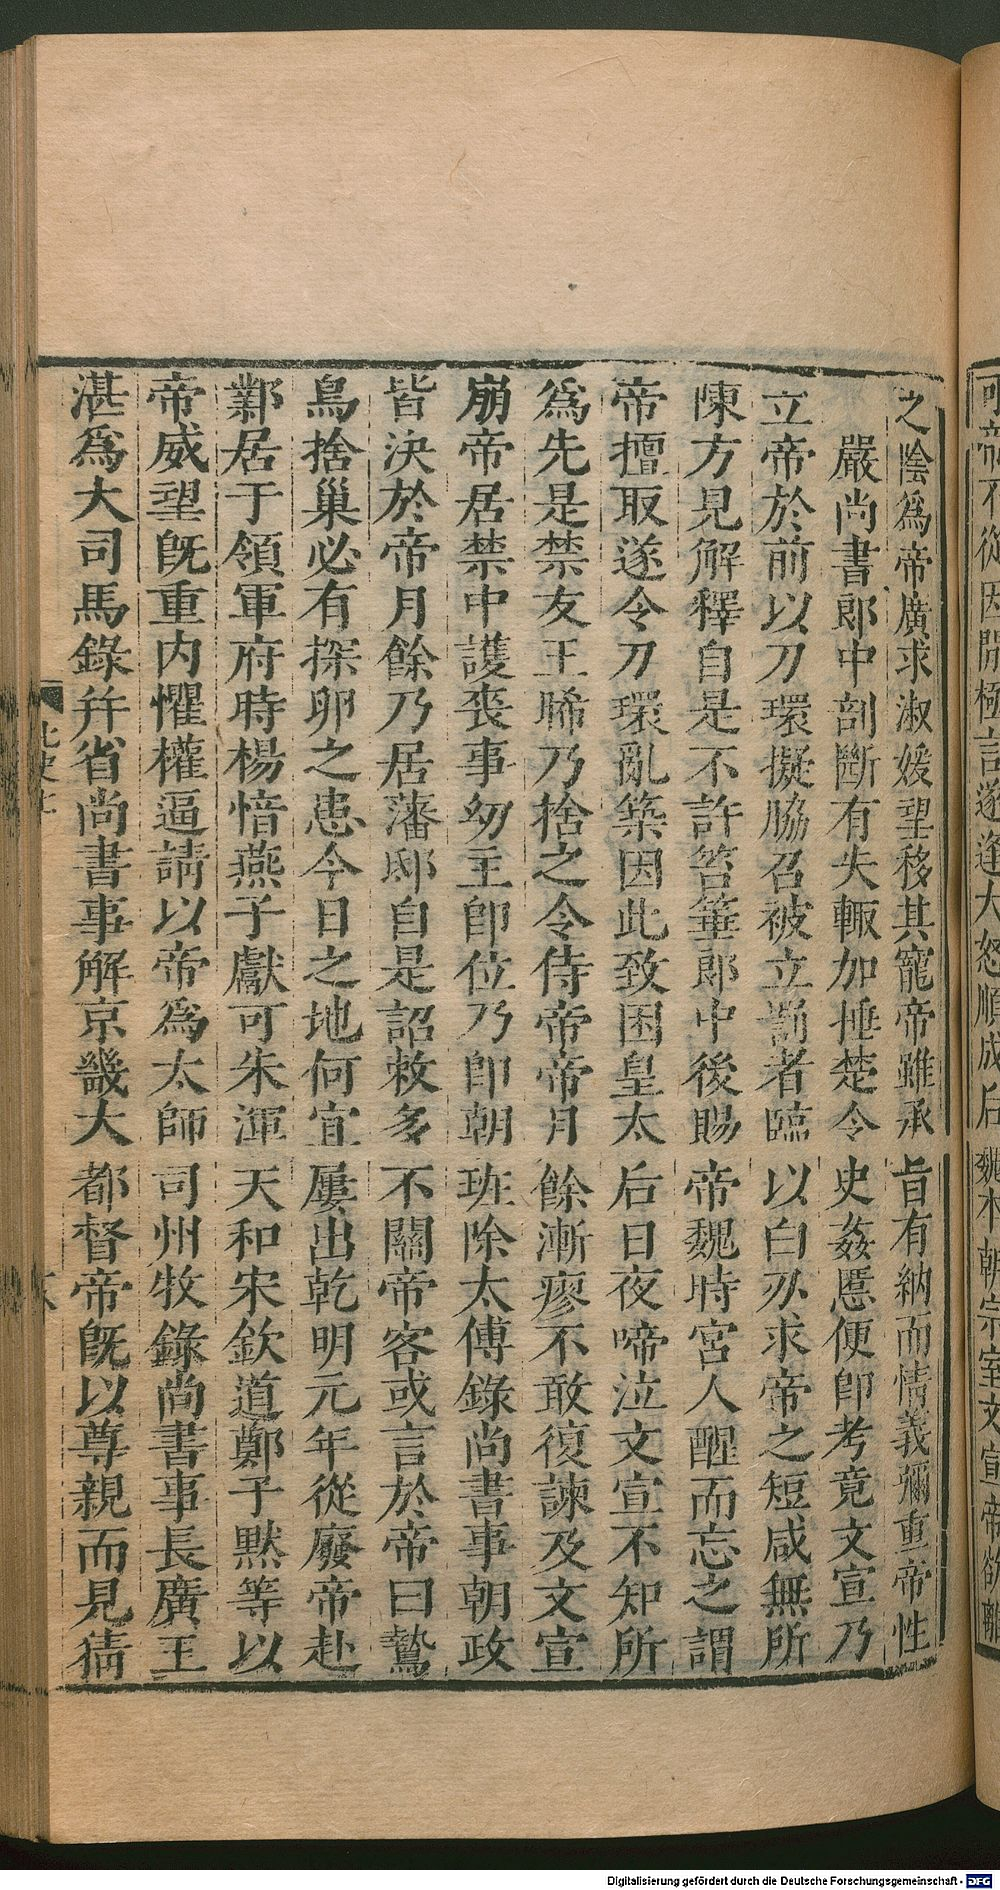 可帝不從因閒極言遂逢大怒順成后魏朝宗室文宣帝欲離
之陰爲帝廣求淑媛望移其寵帝雖承旨有納而情義彌重帝性
嚴尚書郎中剖斷有失輒加捶楚令史姦慝便卽考竟文宣乃
立帝於前以刀環擬脇召被立罰者臨以白刃求帝之短咸無所
陳方見解釋自是不許笞箠郎中後賜帝魏時宮人醒而忘之謂
帝擅取遂令刀環亂築因此致困皇太后日夜啼泣文宣不知所
爲先是禁友王晞乃捨之令侍帝帝月餘漸瘳不敢復諫及文宣
崩帝居禁中護喪事幼主卽位乃卽朝班除太傅錄尚書事朝政
皆決於帝月餘乃居藩邸自是詔敕多不關帝客或言於帝曰鷙
鳥捨巢必有探卵之患今日之地何宜屢出乾明元年從廢帝赴
鄴居于領軍府時楊愔燕子獻可朱渾天和宋欽道鄭子黙等以
帝威望旣重内懼權逼請以帝爲太師司州牧錄尚書事長廣王
湛爲大司馬錄幷省尚書事解京畿大都督帝旣以尊親而見猜
北史七
Digitalisierung gefördert durch die Deutsche Forschungsgemeinschaft - DFG